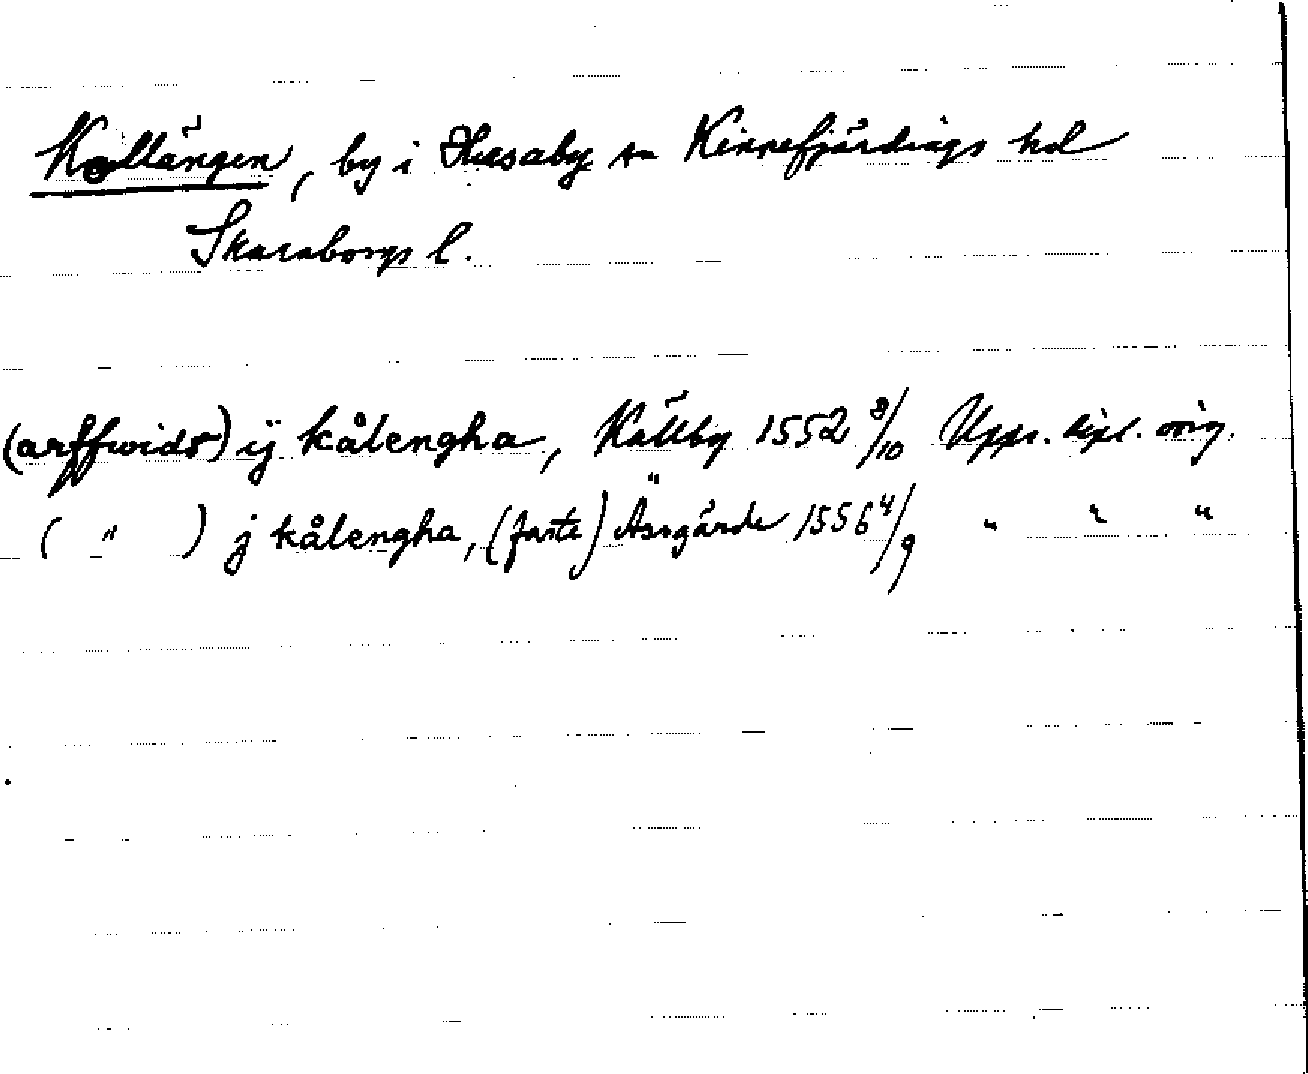 Kollängen, by i Husaby sn Kinnefjärdings hd
Skaraborgs l.
(arffwids) ij kålengha, Källby 1552 8/10 Upps. dipl. orig.
( " ) j kålengha, (faste) Äsgärde 1556 4/9 " " "